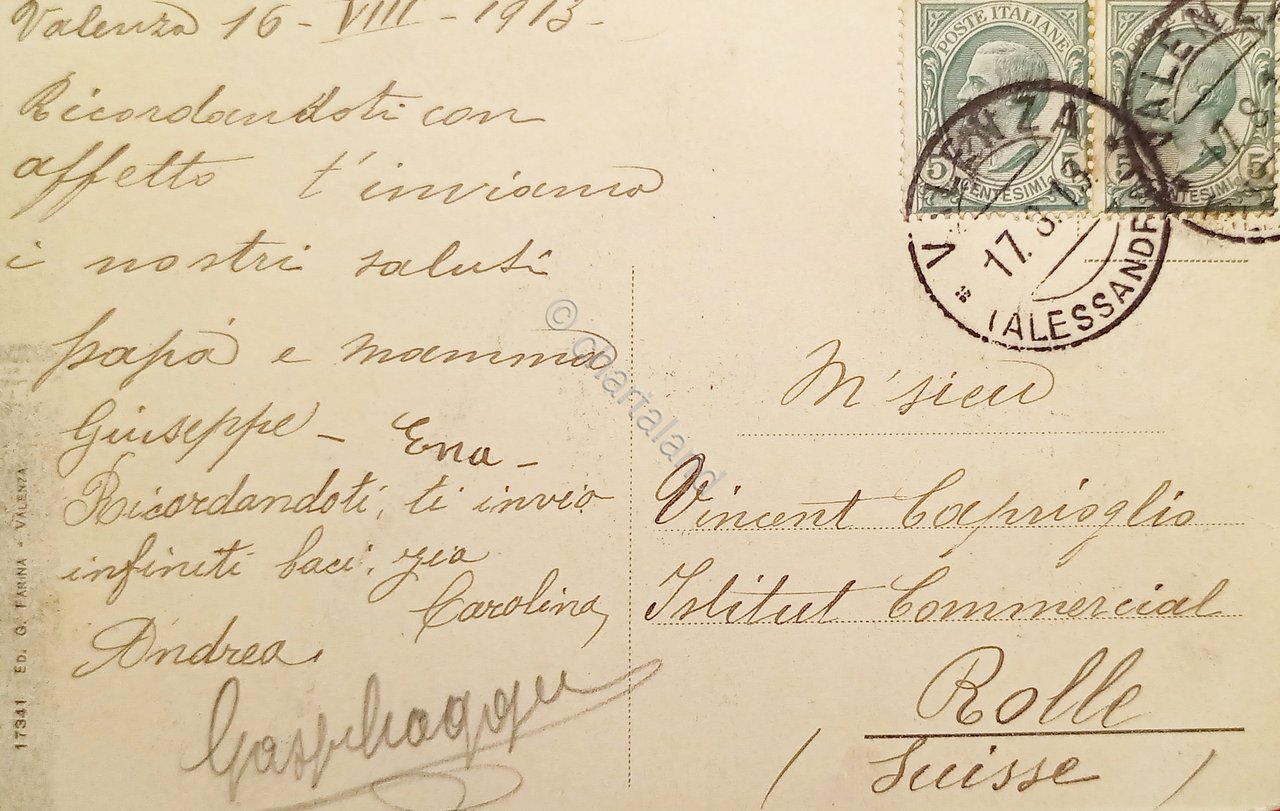 Valenza 16 - VIII - 1913 -
Ricordandoti con
affetto t'inviamo
i nostri saluti
papà e mamma
Giuseppe - Ena -
Ricordandoti, ti invio
infiniti baci, zia
Carolina,
Andrea.
17341 ED. G. FARINA - VALENZA
POSTE ITALIANE
5 CENTESIMI 5
POSTE ITALIANE
5 CENTESIMI 5
VALENZA
17.8.13
(ALESSANDRIA)
VALENZA
17.8
M'sieu
Vincent Caprioglio
Istitut Commercial
Rolle
(Suisse)
© chartaland